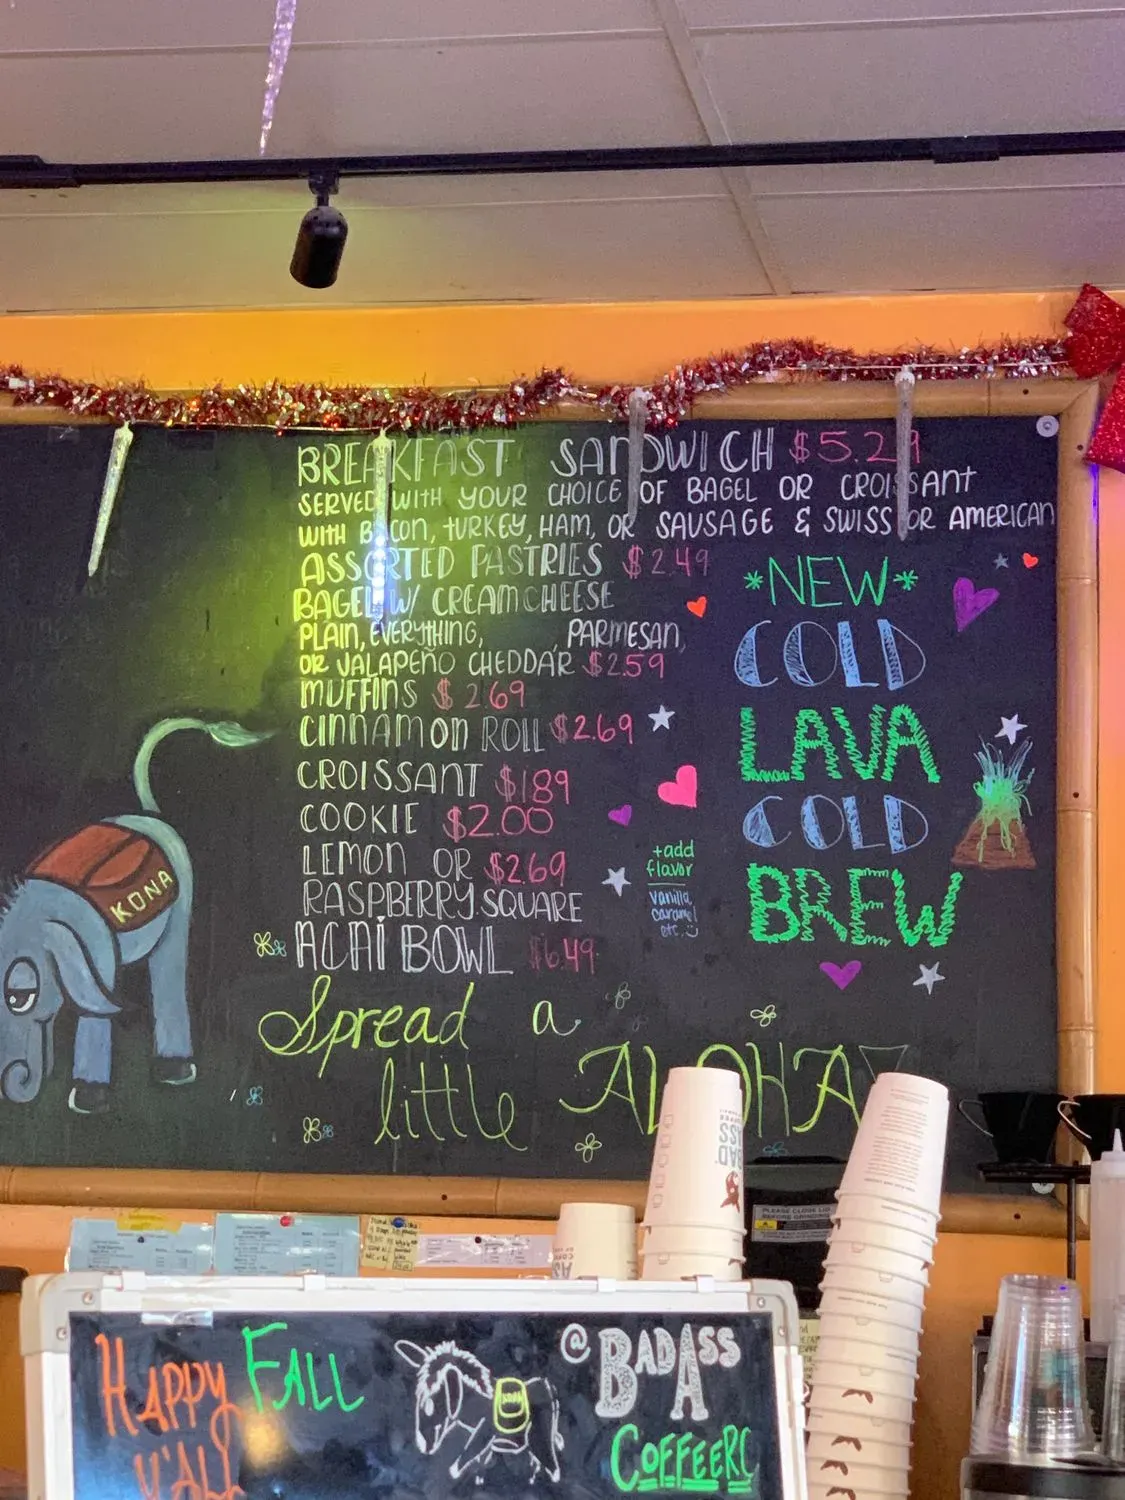 BREAKFAST SANDWICH $5.29
SERVED WITH YOUR CHOICE OF BAGEL OR CROISSANT
WITH BACON, TURKEY, HAM, OR SAUSAGE & SWISS OR AMERICAN
ASSORTED PASTRIES $2.49
BAGEL W/ CREAM CHEESE
PLAIN, EVERYTHING, PARMESAN,
OR JALAPEÑO CHEDDAR $2.59
MUFFINS $2.69
CINNAMON ROLL $2.69
CROISSANT $1.89
COOKIE $2.00
LEMON OR $2.69
RASPBERRY SQUARE
ACAI BOWL $6.49
Spread a
little ALOHA
*NEW*
COLD
LAVA
COLD
BREW
+add
flavor
vanilla
caramel
etc. :)
KONA
BADASS
PLEASE CLOSE LID
BEFORE GRINDING
HAPPY FALL
Y'ALL
KONA
@BADASS
COFFEERC